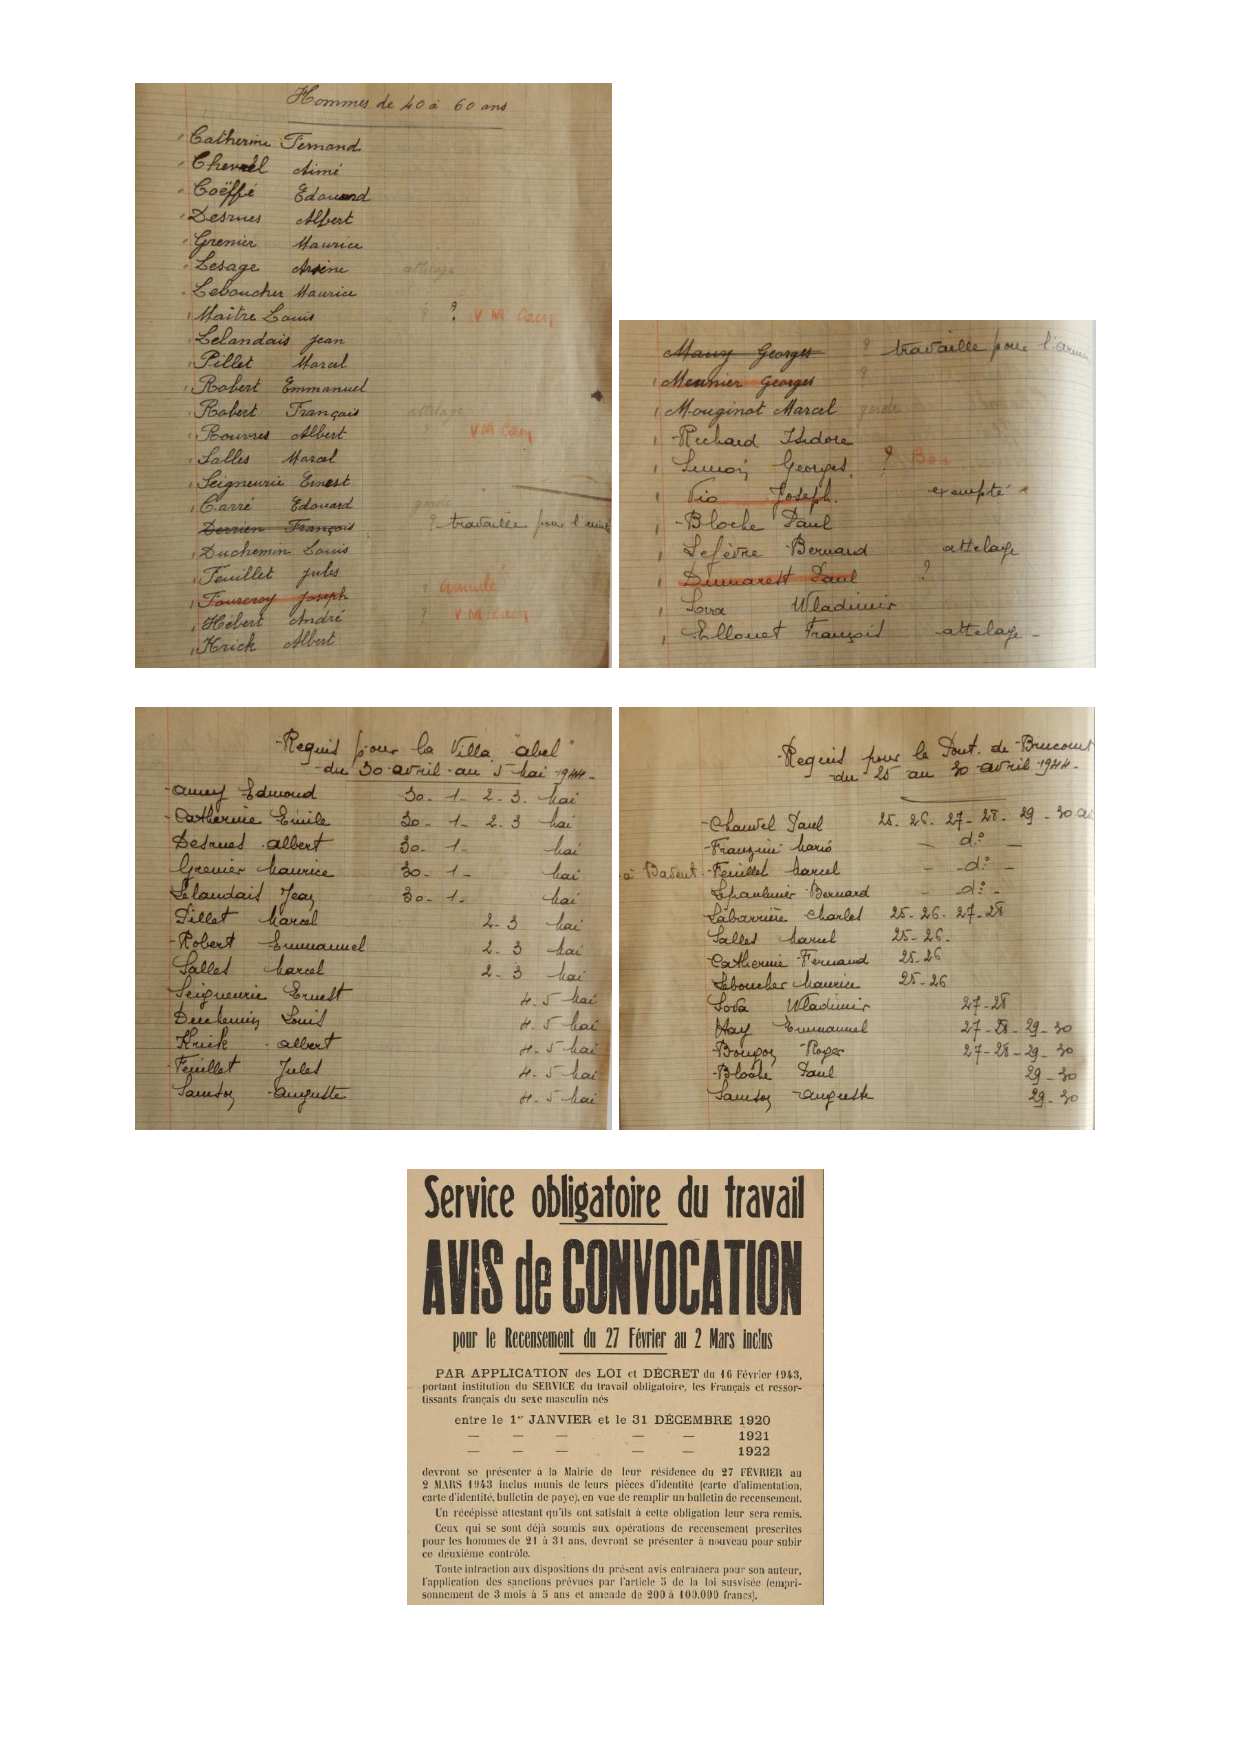 Hommes de 40 à 60 ans
Catherine Fernand
Chevrel Aimé
Coëffé Edouard
Desrues Albert
Grenier Maurice
Lesage Arsène attelage
Leboucher Maurice
Maitre Louis ? ? V M Caen
Lelandais Jean
Pillet Marcel
Robert Emmanuel
Robert Français attelage
Rouvres Albert ? V M Caen
Salles Marcel
Seigneurie Ernest
Carré Edouard garde
Derrien François ? travaille pour
Duchemin Louis
Feuillet Jules
Fourcroy Joseph ? annulé
Hébert André ? V M Caen
Krick Albert
Mauny Georges ? travaille pour
Meunier Georges ?
Mouginot Marcel garde
Richard Isidore
Simon Georges ? Bon
Vio Joseph. exempté
Bloche Paul
Lefèvre Bernard attelage
Dumarest Paul ?
Sova Wladimir
Ellouet François attelage -
Requis pour la Villa "abel"
du 30 avril au 5 Mai 1944 -
Edmond 30 - 1 - 2 - 3. Mai
Catherine Emile 30 - 1 - 2 - 3 Mai
Desrues albert 30 - 1 - Mai
Grenier Maurice 30 - 1 - Mai
Lelandais Jean 30 - 1 - Mai
Pillet Marcel 2 - 3 Mai
Robert Emmanuel 2 - 3 Mai
Salles Marcel 2 - 3 Mai
Seigneurie Ernest 4 - 5 Mai
Duchemin Louis 4 - 5 Mai
Krick albert 4 - 5 Mai
Feuillet Jules 4 - 5 Mai
Samson auguste 4 - 5 Mai
Requis pour le Pont de Brucourt
du 25 au 30 avril 1944 -
Chauvel Paul 25. 26. 27 - 28 - 29 - 30
Franzini Mario - d° -
à Bavent Feuillet Marcel - d° -
Lepaulmier Bernard - d° -
Labarrière Charles 25 - 26 - 27 - 28
Salles Marcel 25 - 26 -
Catherine Fernand 25 - 26
Leboucher Maurice 25 - 26
Sova Wladimir 27 - 28
Hay Emmanuel 27 - 28 - 29 - 30
Bougon Roger 27 - 28 - 29 - 30
Bloche Paul 29 - 30
Samson auguste 29 - 30
Service obligatoire du travail
AVIS de CONVOCATION
pour le Recensement du 27 Février au 2 Mars inclus
PAR APPLICATION des LOI et DÉCRET du 16 Février 1943,
portant institution du SERVICE du travail obligatoire, les Français et ressor-
tissants français du sexe masculin nés
entre le 1er JANVIER et le 31 DÉCEMBRE 1920
— — — — — 1921
— — — — — 1922
devront se présenter à la Mairie de leur résidence du 27 FÉVRIER au
2 MARS 1943 inclus munis de leurs pièces d'identité (carte d'alimentation,
carte d'identité, bulletin de paye), en vue de remplir un bulletin de recensement.
Un récépissé attestant qu'ils ont satisfait à cette obligation leur sera remis.
Ceux qui se sont déjà soumis aux opérations de recensement prescrites
pour les hommes de 21 à 31 ans, devront se présenter à nouveau pour subir
ce deuxième contrôle.
Toute infraction aux dispositions du présent avis entraînera pour son auteur,
l'application des sanctions prévues par l'article 5 de la loi susvisée (empri-
sonnement de 3 mois à 5 ans et amende de 200 à 100.000 francs).